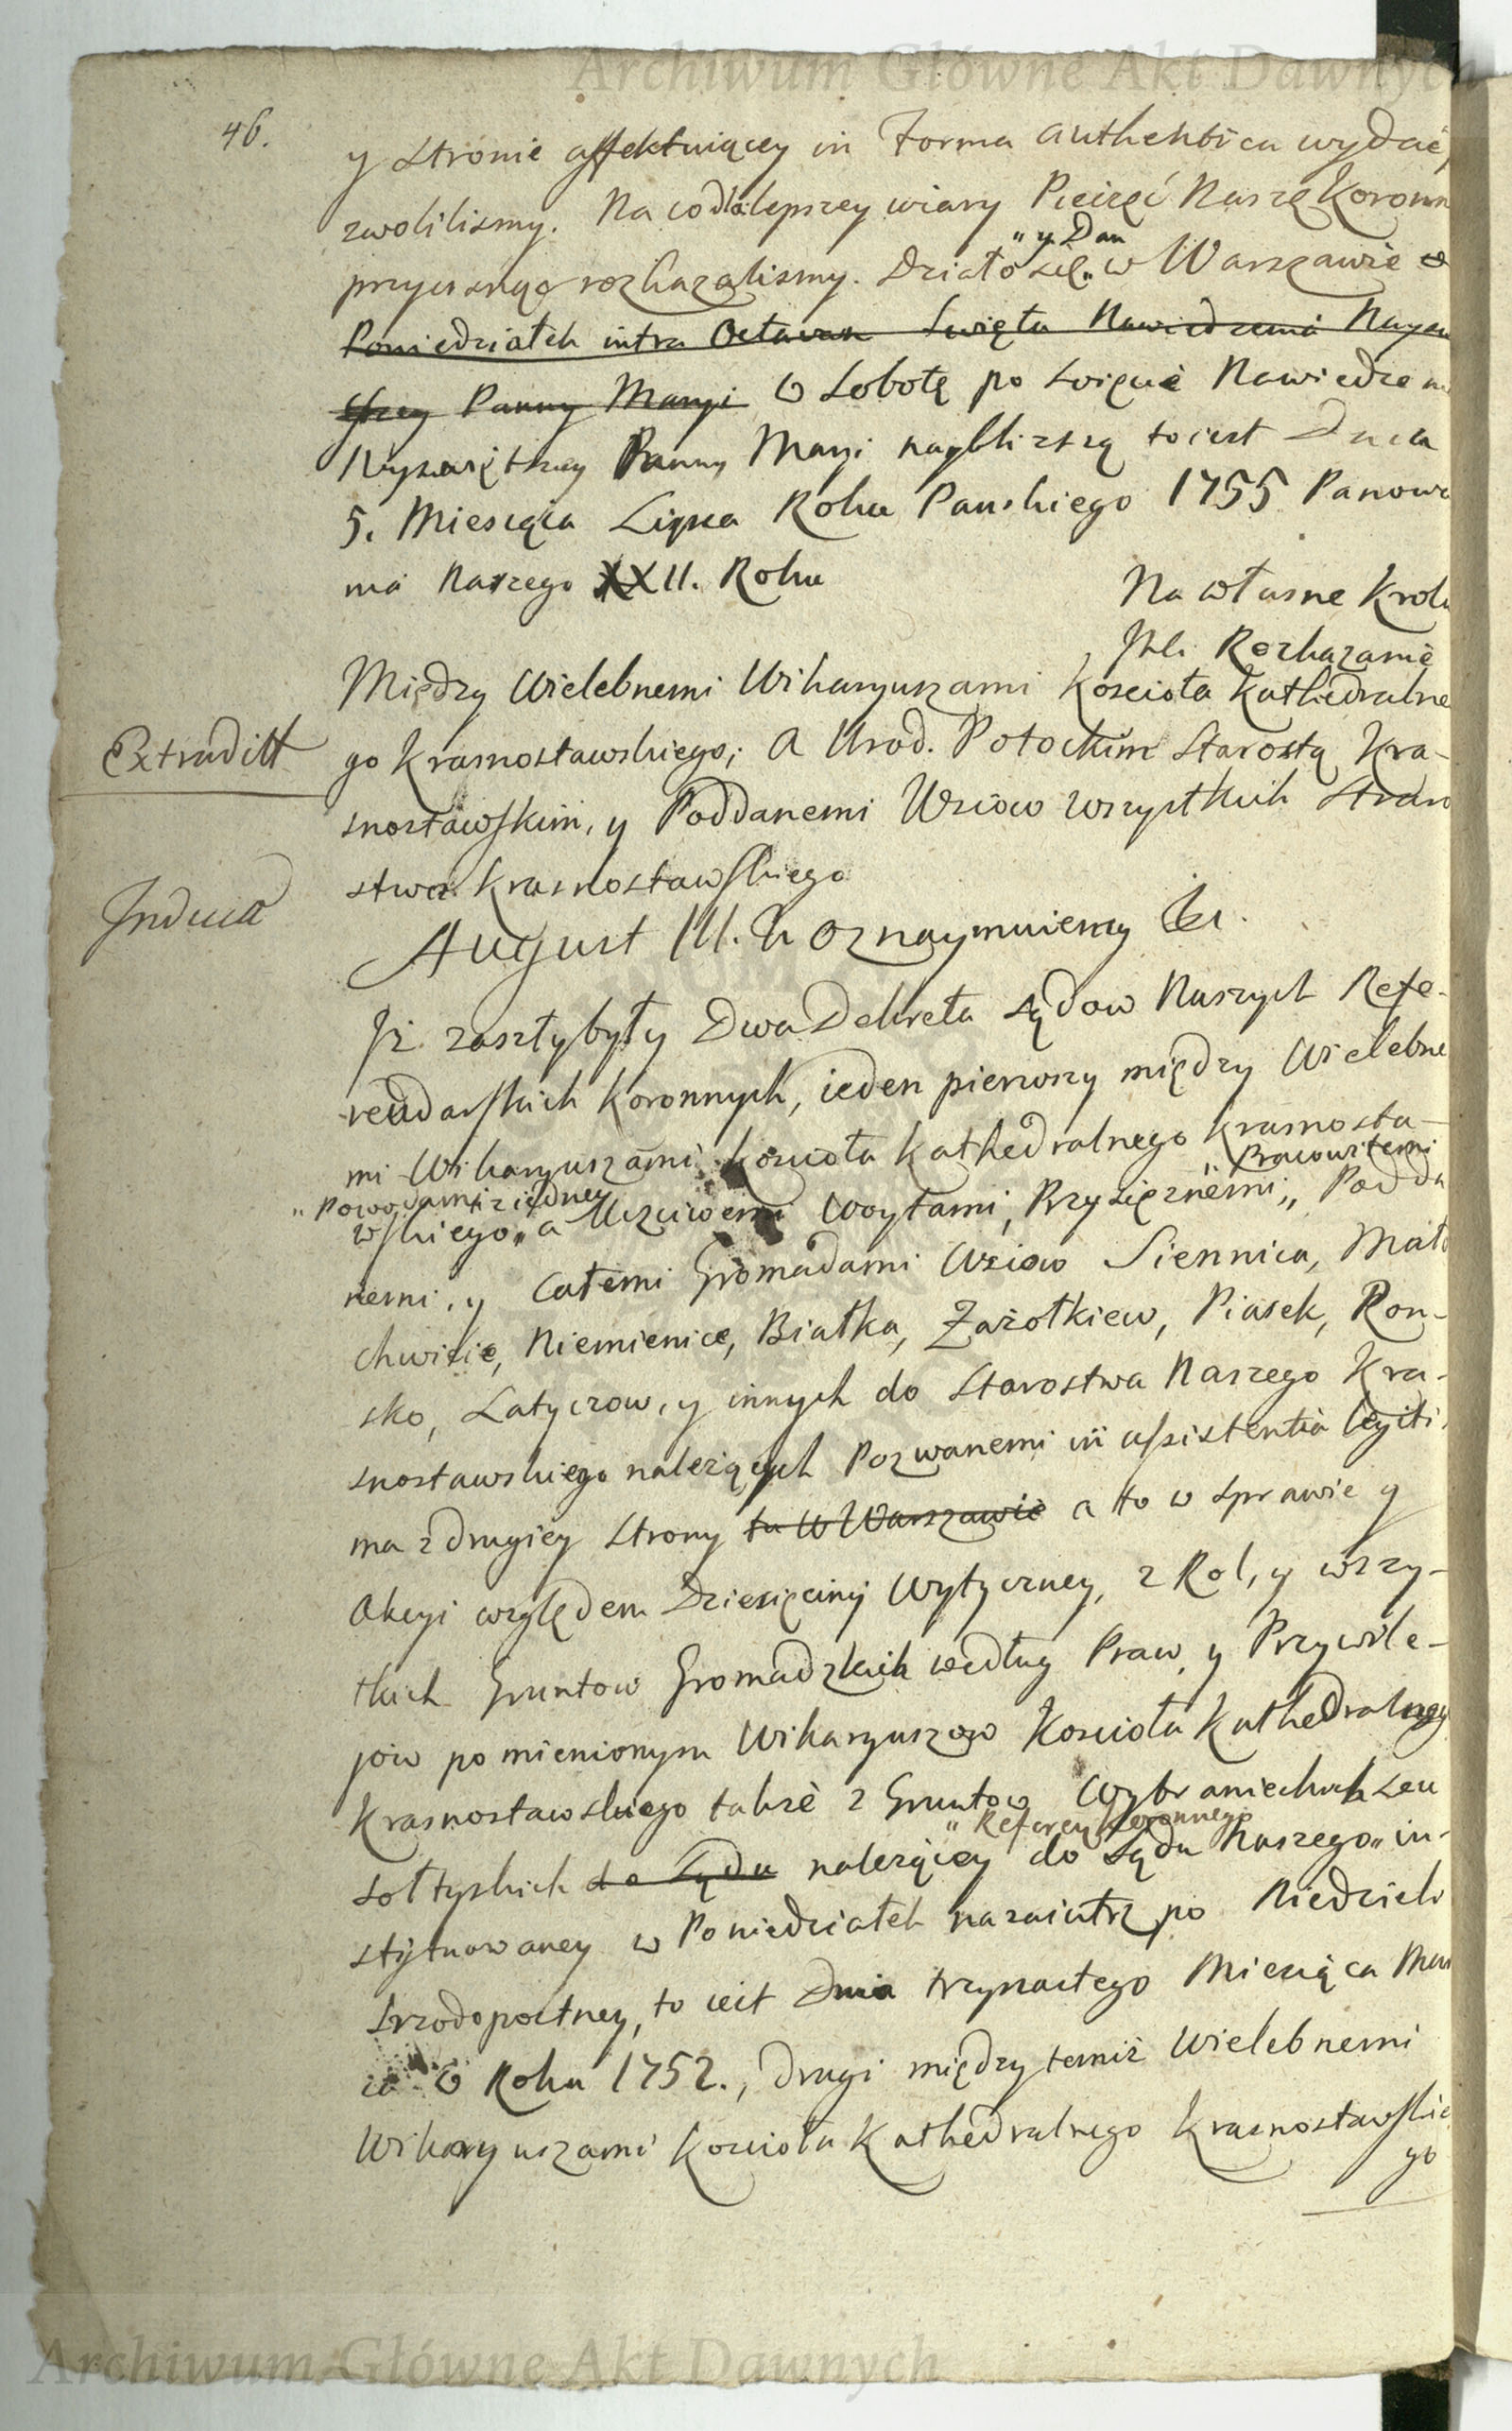 Archiwum Główne Akt Dawnych
46.
y stronie affektuiącey in Forma authentica wydać
zwolilismy. Na co dla lepszey wiary Pieczęć Naszę Koronn
przycisnąc rozkazalismy. Działo się " y Dan " w Warszawie w
Poniedziałek intra Octavam Swięta Nawiedzenia Nayswi
tszey Panny Maryi W Sobotę po swięcie Nawiedzeni
Nayswiętszey Panny Maryi naybliższą to iest Dnia
5. Miesiąca Lipca Roku Panskiego 1755 Panowa
nia Naszego XXII. Roku
Na własne Krola
Jmci Rozkazanie
Extradit
Między Wielebnemi Wikaryuszami Kościoła Kathedralne
go Krasnostawskiego; a Urod. Potockim Starostą Kra-
snostawskim, y Poddanemi Wsiow wszystkich Staro
stwa Krasnostawskiego
Inducta
August III. K oznaymuiemy &c.
Iż zaszły były Dwa Dekreta sądow Naszych Refe-
rendarskich Koronnych, ieden pierwszy między Wielebne
mi Wikaryuszami Koscioła Kathedralnego Krasnosta-
wskiego " Powodami z iedney " a Uczciwemi Woytami, Przysięznemi, " Pracowitemi " Podda
nemi, y całemi Gromadami Wsiow Siennica, Mało
chwieie, Niemienice, Białka, Zażołkiew, Piasek, Ron-
sko, Latyczow, y innych do Starostwa Naszego Kra-
snostawskiego należących Pozwanemi in assistentia legiti
ma z drugiey strony tu w Warszawie a to w sprawie y
Akcyi względem Dziesięciny Wytyczney, z Rol, y wszy-
tkich Gruntow Gromadzkich według Praw y Przywile-
jow pomienionym Wikaryuszow Koscioła Kathedralnego
Krasnostawskiego także z Gruntow Wybranieckich seu
Sołtyskich do Sądu należącey do Sądu Naszego " Referen Koronnego " in-
stytuowaney w Poniedziałek nazaiutrz po Niedzieli
Srzodopostney, to iest Dnia trzynastego Miesiąca Mar
ca W Roku 1752., Drugi między temiż Wielebnemi
Wikaryuszami Koscioła Kathedralnego Krasnostawskie
go
Archiwum Główne Akt Dawnych